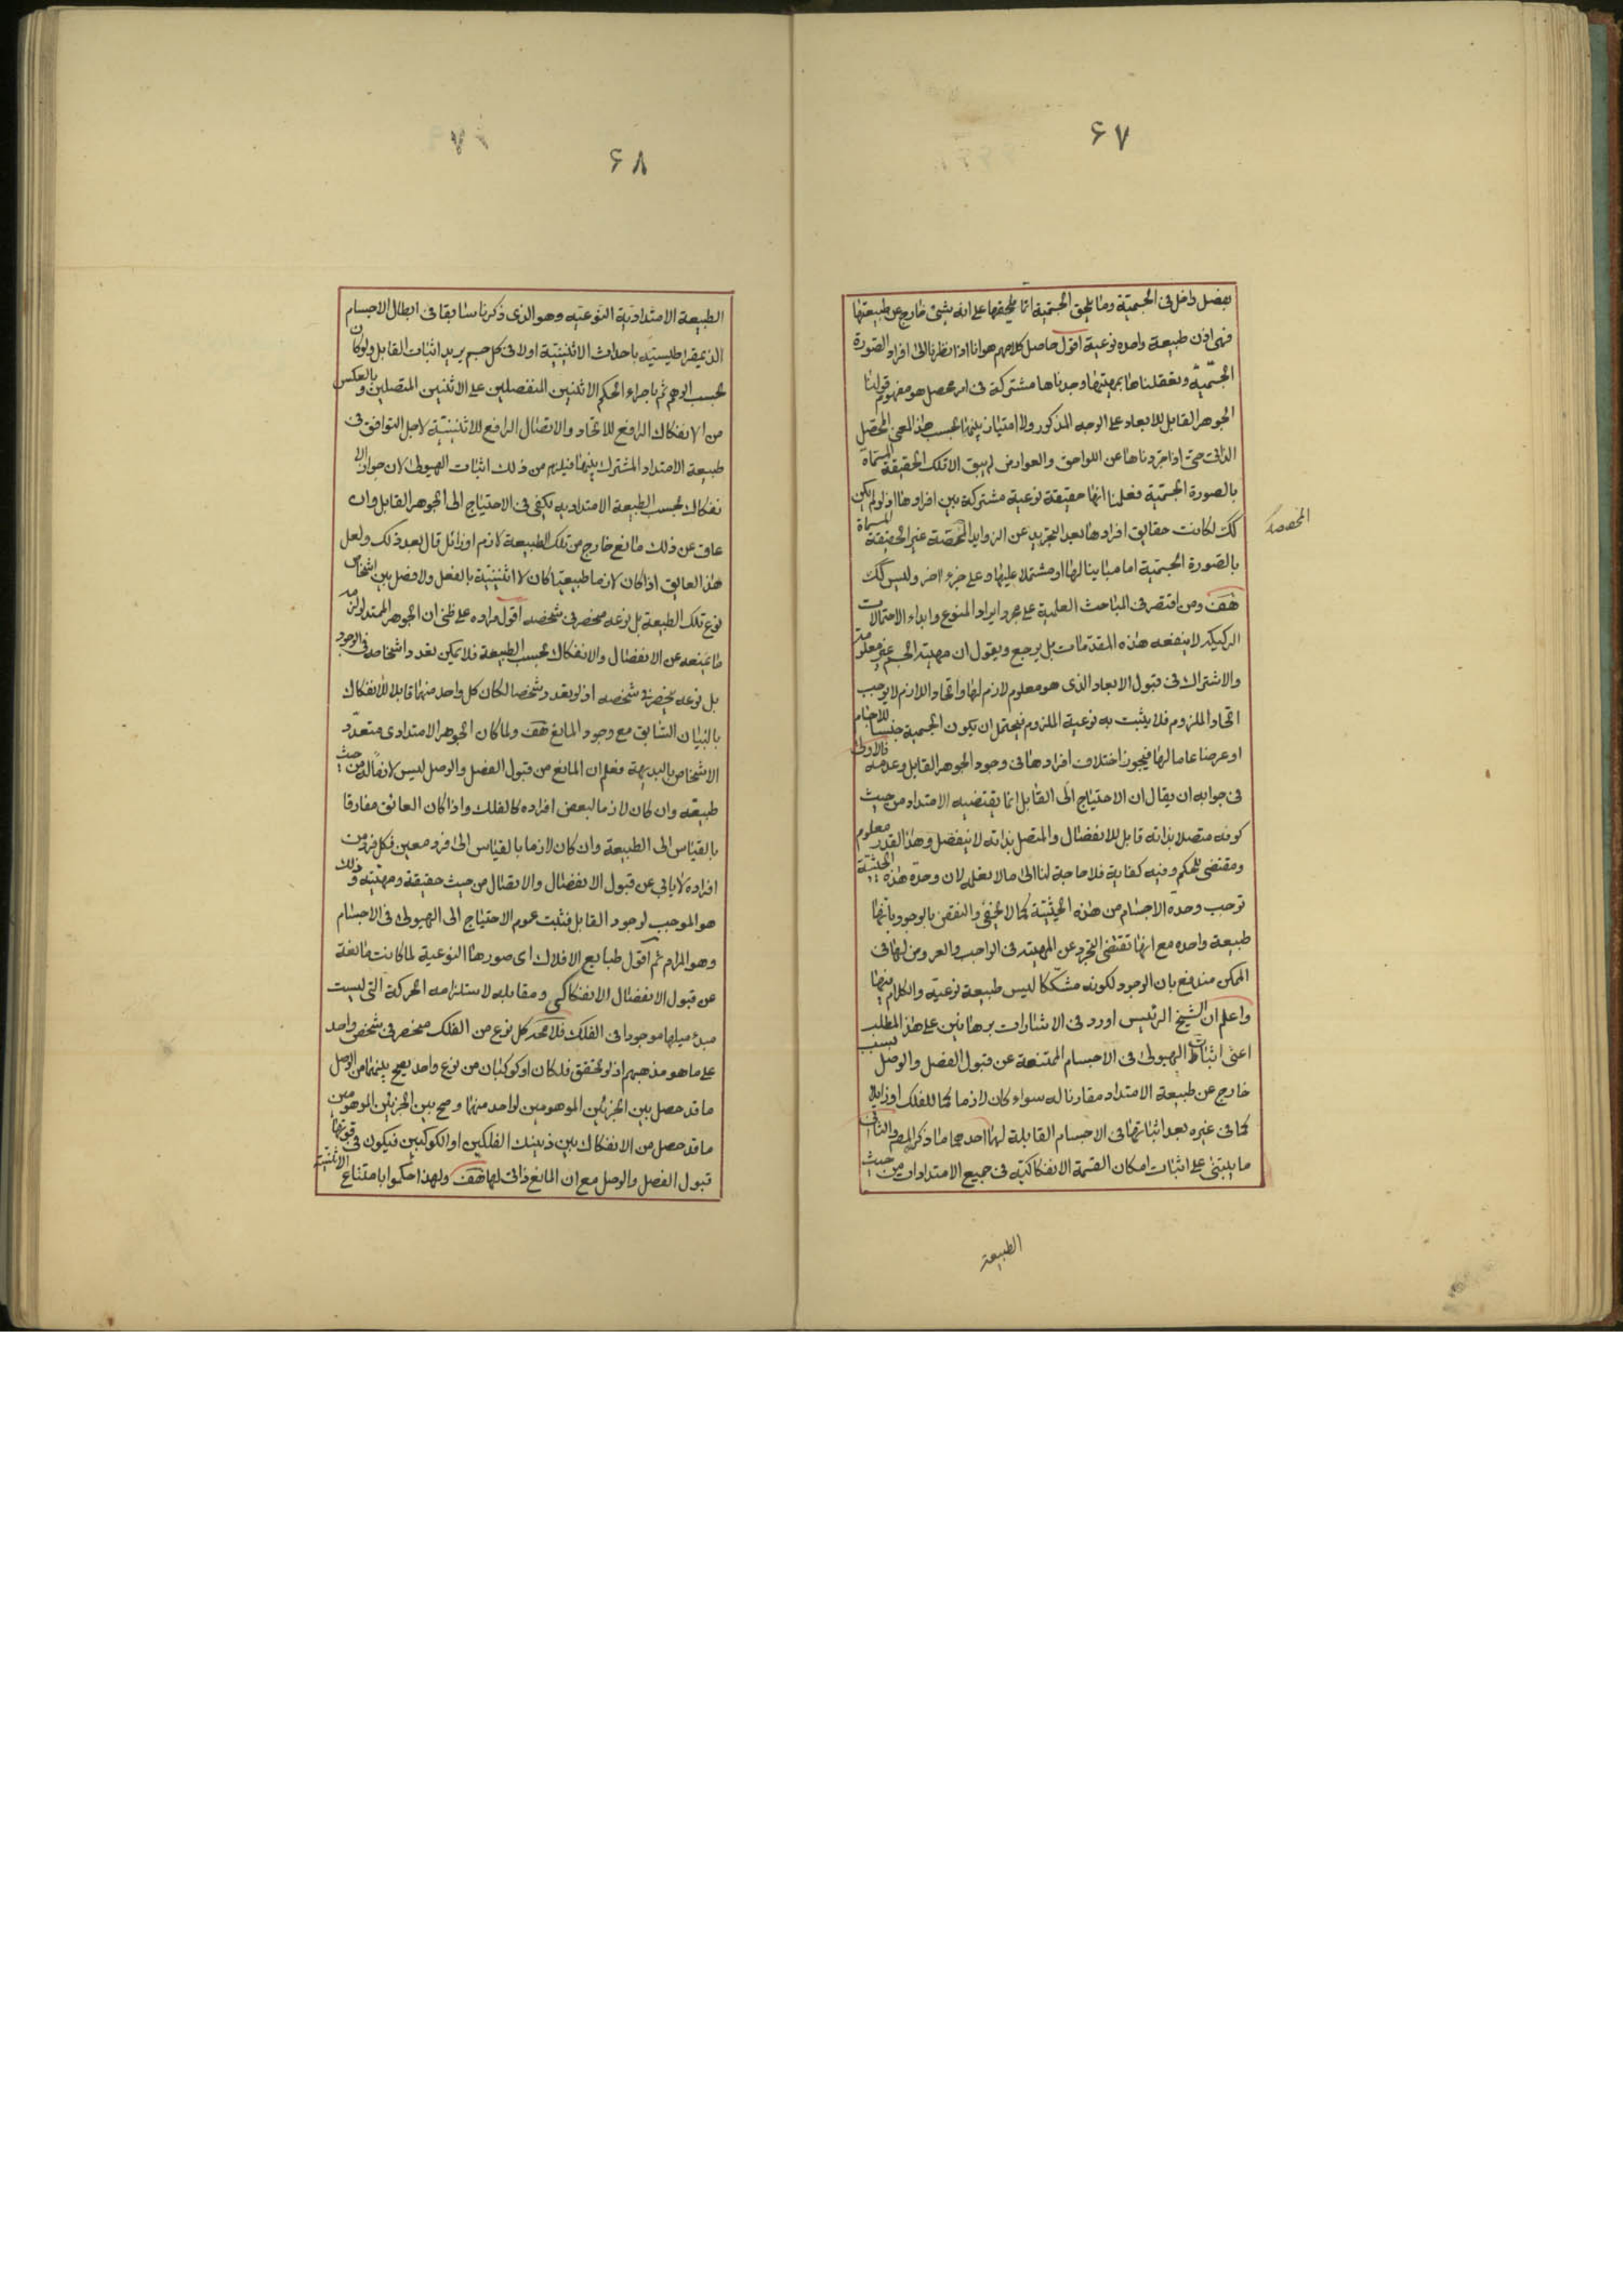 ۶۷
بفصل داخل فى الجسمية وما يلحق الجسمية انما يلحقها على انه شئ خارج عن طبيعتها
فهى اذن طبيعة واحده نوعية اقول حاصل كلامهم هو انا اذا نظرنا الى افراد الصورة
الجسمية وتعقلناها بمهيتها وجدناها مشتركة فى امر محصل هو مفهوم قولنا
الجوهر القابل للابعاد على الوجه المذكور ولا امتياز بينها بحسب هذا المعنى المحصل
الذاتى حتى اذا جردناها عن اللواحق والعوارض لم يبق الا تلك الحقيقة المسماة
بالصورة الجسمية فعلمنا انها حقيقة نوعية مشتركة بين افرادها اذ لو لم يكن
كك لكانت حقايق افرادها بعد التجريد عن الزوايد المخصصة غير الحقيقة المسماة
المخصصه
بالصورة الجسمية اما مباينا لها او مشتملا عليها وعلى جزء اخر وليس كك
هف ومن اقتصر فى المباحث العلمية على مجرد ايراد المنوع وابداء الاحتمالات
الركيكه لا ينفعه هذه المقدمات بل يرجع ويقول ان مهية الجسم غير معلومة
والاشتراك فى قبول الابعاد الذى هو معلوم لازم لها واتحاد اللازم لا يوجب
اتحاد الملزوم فلا يثبت به نوعية الملزوم فيحتمل ان يكون الجسمية جنسا للاجسام
او عرضا عاما لها فيجوز اختلاف افرادها فى وجود الجوهر القابل وعدمه فالاولى
فى جوابه ان يقال ان الاحتياج الى القابل انما يقتضيه الامتداد من حيث
كونه متصلا بذاته قابل للانفصال والمتصل بذاته لا ينفصل وهذا القدر معلوم
ومقتضى للحكم وفيه كفاية فلا حاجة لنا الى ما لا نعلمه لان وحدة هذه الحيثية
توجب وحدة الاجسام من هذه الحيثية كما لا يخفى والنقض بالوجود بانها
طبيعة واحده مع انها تقتضى التجرد عن المهية فى الواجب والعروض لها فى
الممكن مندفع بان الوجود لكونه مشككا ليس طبيعة نوعيه والكلام فيها
واعلم ان الشيخ الرئيس اورد فى الاشارات برهانين على هذا المطلب
اعنى اثبات الهيولى فى الاجسام الممتنعة عن قبول الفصل والوصل بسبب
خارج عن طبيعة الامتداد مقارنا له سواء كان لازما كما للفلك او زايلا
كما فى غيره بعد اثباتها فى الاجسام القابلة لها احدهما ما ذكره المصر والثانى
ما يبتنى على اثبات امكان القسمة الانفكاكية فى جميع الامتدادات من حيث
الطبيعة
۶۸
الطبيعة الامتدادية النوعيه وهو الذى ذكرنا سابقا فى ابطال الاجسام
الذيمقراطيسيه باحداث الاثنينية اولا فى كل جسم يريد اثبات القابل ولو كان
بحسب الوهم ثم باجراء الحكم الاثنين المنفصلين على الاثنين المتصلين وبالعكس
من الانفكاك الرافع للاتحاد والاتصال الرافع للاثنينية لاجل التوافق فى
طبيعة الامتداد المشترك بينها فيلزم من ذلك اثبات الهيولى لان جواز الا
نفكاك بحسب الطبيعة الامتداديه يكفى فى الاحتياج الى الجوهر القابل وان
عاق عن ذلك مانع خارج من تلك الطبيعة لازم او زائل قال بعد ذلك ولعل
هذا العايق اذا كان لازما طبيعيا كان لا اثنينية بالفعل ولا فصل بين اشخاص
نوع تلك الطبيعة بل نوعه منحصر فى شخصه اقول مراده على ظنى ان الجوهر الممتد لو لزمه
ما يمنعه عن الانفصال والانفكاك بحسب الطبيعة فلا يمكن تعدد اشخاصه فى الوجود
بل نوعه ينحصر فى شخصه اذ لو تعدد شخصا لكان كل واحد منهما قابلا للانفكاك
بالبيان السابق مع وجود المانع هف ولما كان الجوهر الامتدادى متعدد
الاشخاص بالبديهة فعلم ان المانع من قبول الفصل والوصل ليس لازما له من حيث
طبيعته وان كان لازما لبعض افراده كالفلك واذا كان العائق مفارقا
بالقياس الى الطبيعة وان كان لازما بالقياس الى فرد معين فكل فرد من
افراده لا يابى عن قبول الانفصال والاتصال من حيث حقيقة ومهيته وذلك
هو الموجب لوجود القابل فثبت عموم الاحتياج الى الهيولى فى الاجسام
وهو المرام ثم اقول طبايع الافلاك اى صورها النوعية لما كانت مانعة
عن قبول الانفصال الانفكاكى ومقابله لاستلزامه الحركة التى ليست
مبدء ميلها موجودا فى الفلك فلا محه كل نوع من الفلك منحصر فى شخص واحد
على ما هو مذهبهم اذ لو تحقق فلكان او كوكبان من نوع واحد يصح بينهما من الوصل
ما قد حصل بين الجزئين الموهومين لواحد منهما وصح بين الجزئين الموهومين
ما قد حصل من الانفكاك بين ذينك الفلكين او الكوكبين فيكون فى قوتها
قبول الفصل والوصل مع ان المانع ذاتى لها هف ولهذا حكموا بامتناع الاثنينية